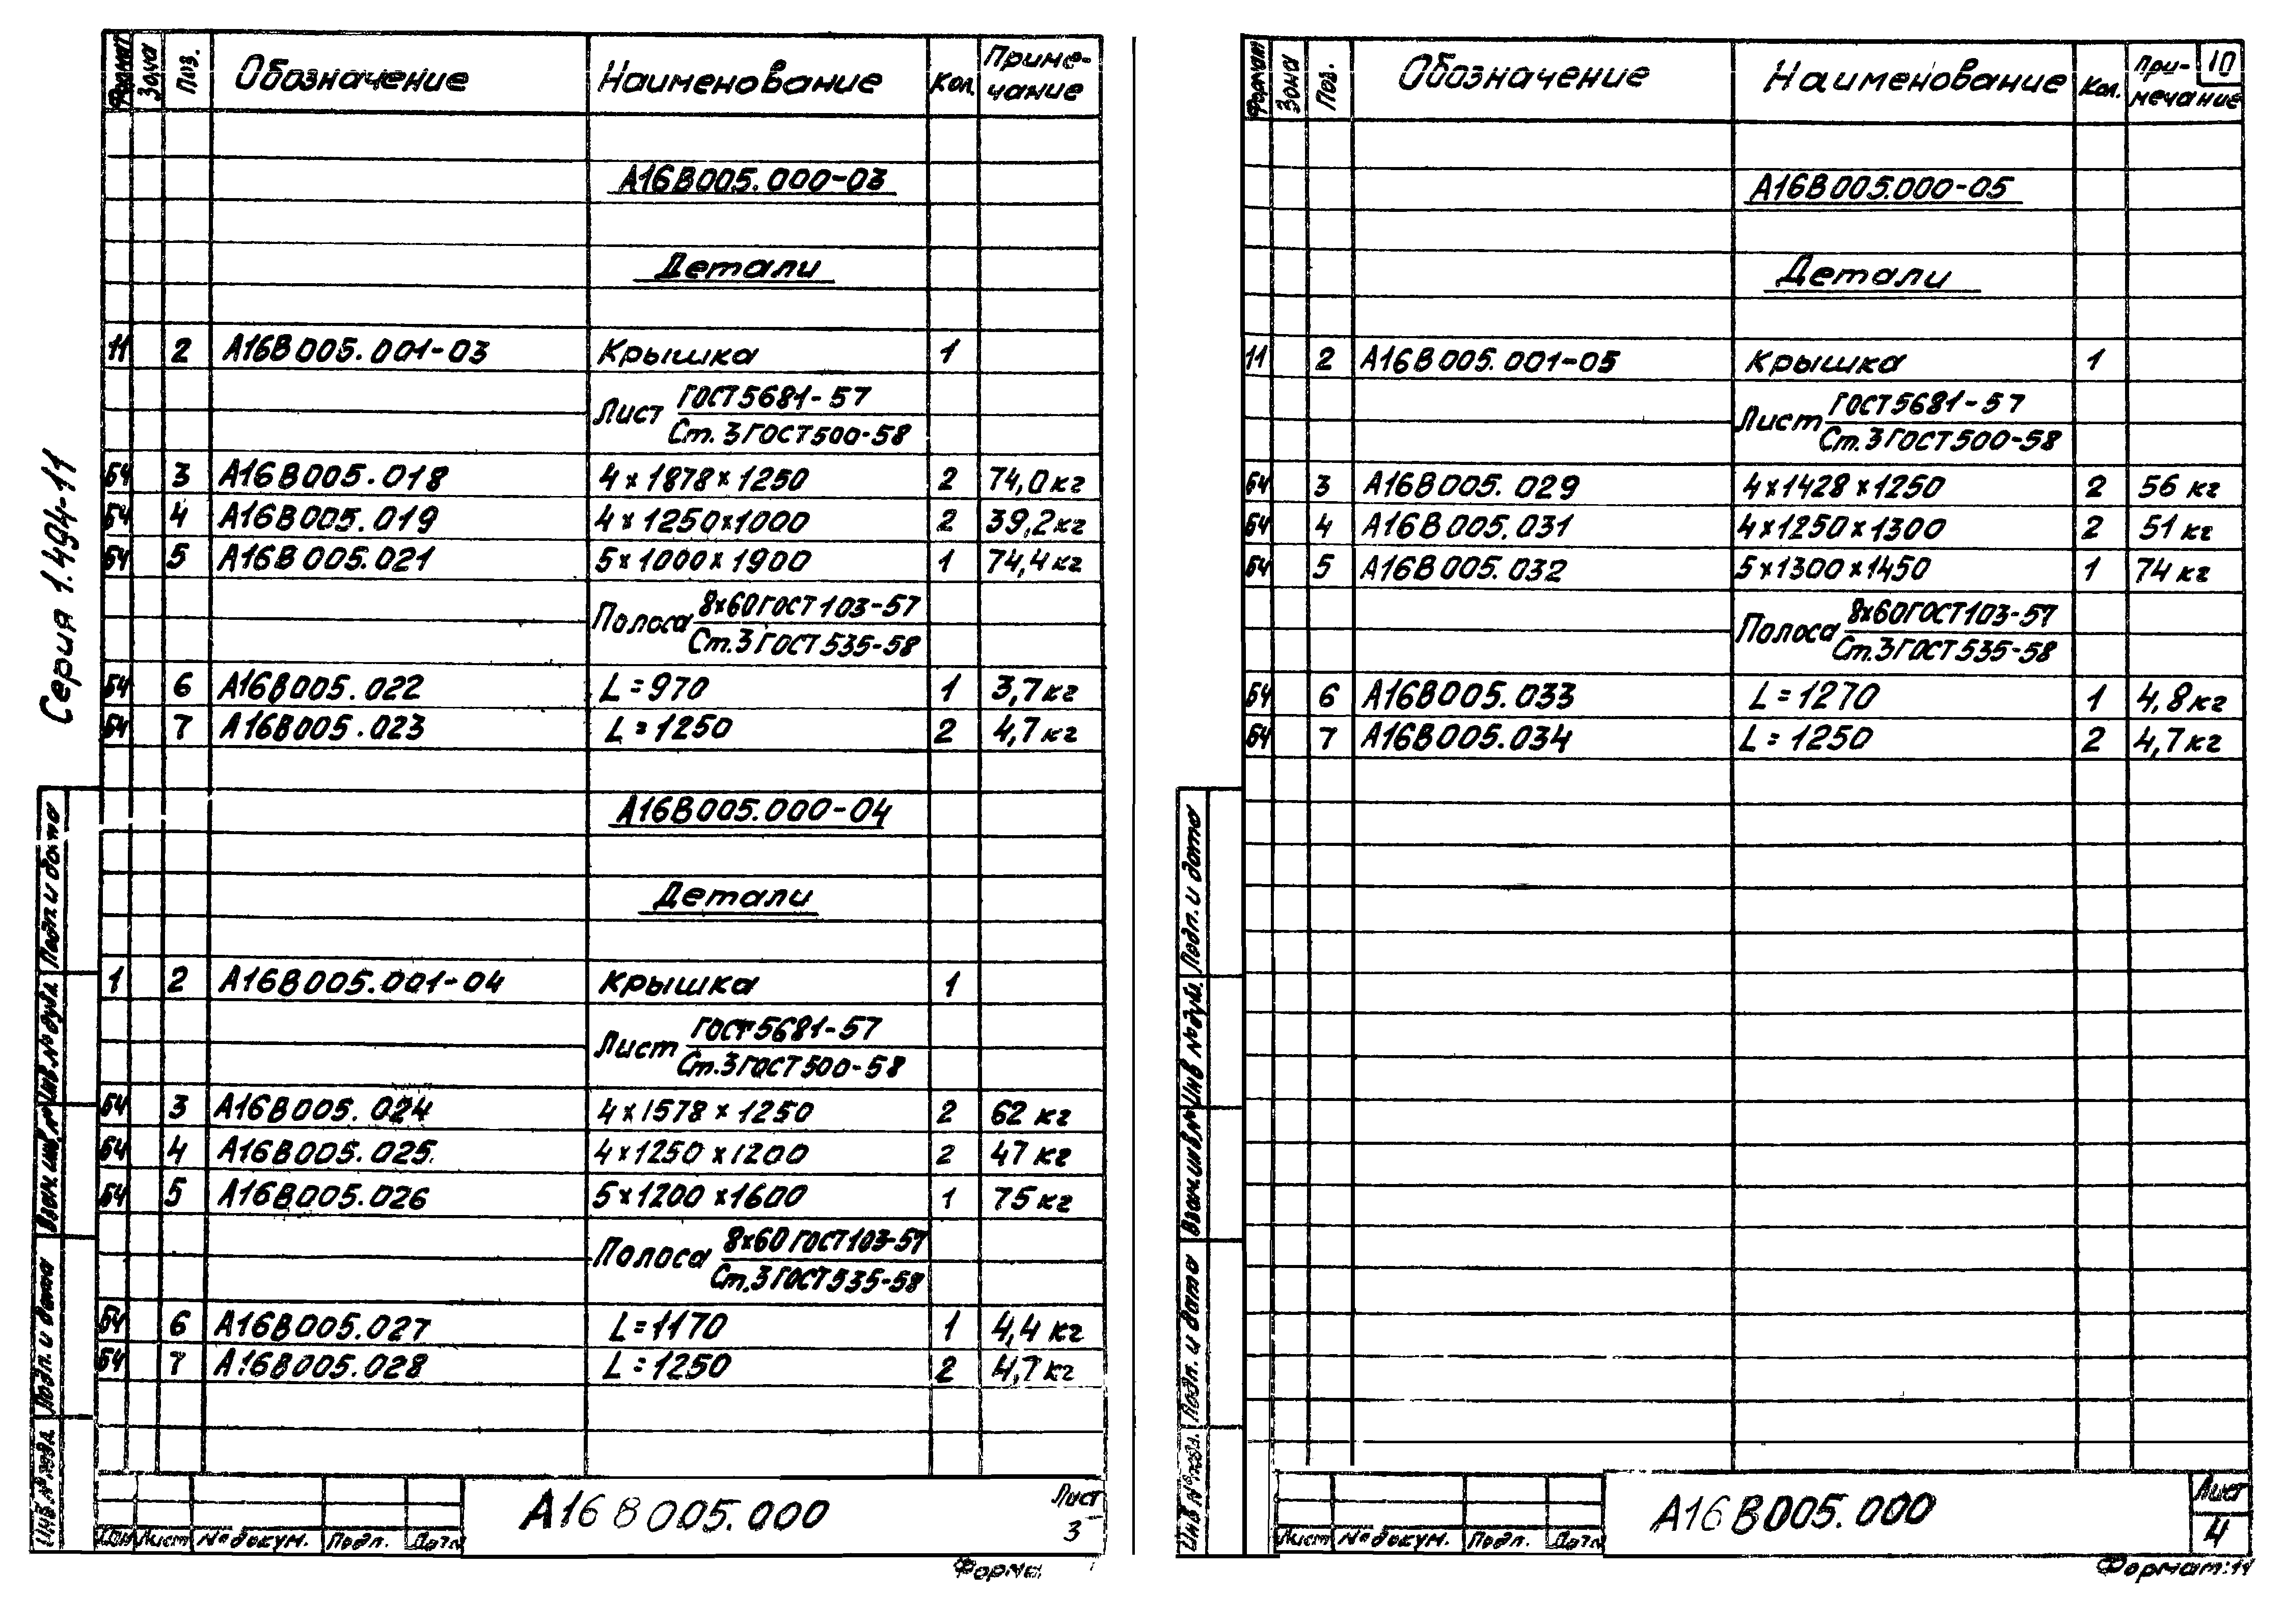 Серия 1.494-11
Формат Зона Поз. Обозначение Наименование Кол. Приме-чание
А16В005.000-03
Детали
11 2 А16В005.001-03 Крышка 1
Лист ГОСТ5681-57
Ст.3ГОСТ500-58
БЧ 3 А16В005.018 4×1878×1250 2 74,0кг
БЧ 4 А16В005.019 4×1250×1000 2 39,2кг
БЧ 5 А16В005.021 5×1000×1900 1 74,4кг
Полоса 8×60ГОСТ103-57
Ст.3ГОСТ535-58
БЧ 6 А16В005.022 L=970 1 3,7кг
БЧ 7 А16В005.023 L=1250 2 4,7кг
А16В005.000-04
Детали
1 2 А16В005.001-04 Крышка 1
Лист ГОСТ5681-57
Ст.3ГОСТ500-58
БЧ 3 А16В005.024 4×1578×1250 2 62 кг
БЧ 4 А16В005.025 4×1250×1200 2 47 кг
БЧ 5 А16В005.026 5×1200×1600 1 75 кг
Полоса 8×60 ГОСТ103-57
Ст.3ГОСТ535-58
БЧ 6 А16В005.027 L=1170 1 4,4 кг
БЧ 7 А16В005.028 L=1250 2 4,7 кг
Инв.№подл. Подп. и дата Взам. инв.№ Инв.№дубл. Подп. и дата
Лист №докум. Подп. Дата
А16В005.000
Лист
3
Форма
Формат Зона Поз. Обозначение Наименование Кол. При-мечание
10
А16В005.000-05
Детали
11 2 А16В005.001-05 Крышка 1
Лист ГОСТ5681-57
Ст.3ГОСТ500-58
БЧ 3 А16В005.029 4×1428×1250 2 56 кг
БЧ 4 А16В005.031 4×1250×1300 2 51 кг
БЧ 5 А16В005.032 5×1300×1450 1 74 кг
Полоса 8×60ГОСТ103-57
Ст.3ГОСТ535-58
БЧ 6 А16В005.033 L=1270 1 4,8кг
БЧ 7 А16В005.034 L=1250 2 4,7кг
Инв №подл. Подп. и дата Взам.инв.№ Инв №дубл. Подп. и дата
Лист №докум. Подп. Дата
А16В005.000
Лист
4
Формат:11